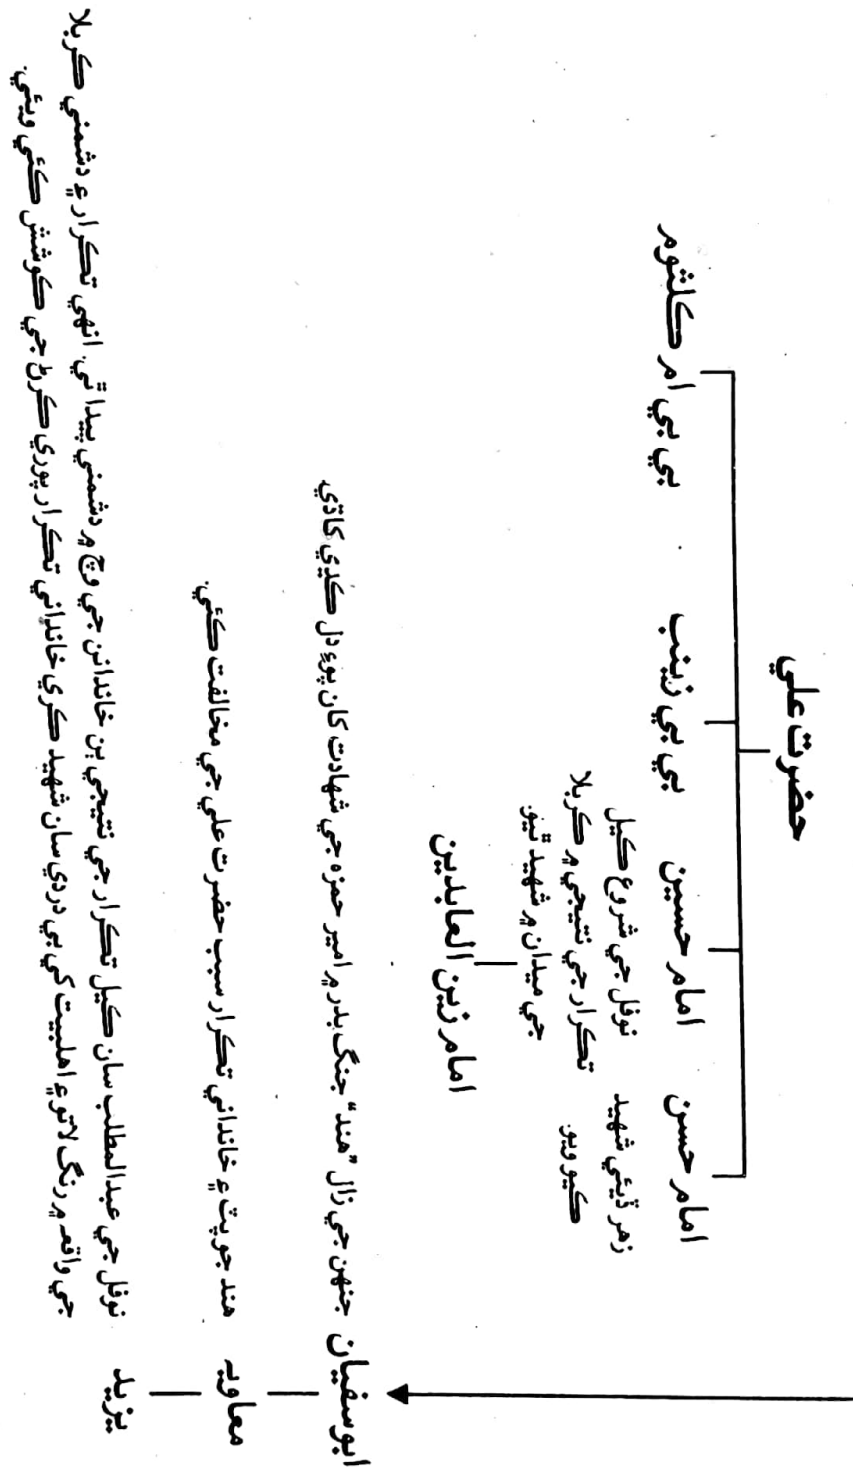 حضرت علي
امام حسن
امام حسين
بي بي زينب
بي بي ام ڪلثوم
زهر ڏيئي شهيد
ڪيو ويو
نوفل جي شروع ڪيل
تڪرار جي نتيجي ۾ ڪربلا
جي ميدان ۾ شهيد ٿيو.
امام زين العابدين
ابوسفيان
جنهن جي زال "هند" جنگ بدر ۾ امير حمزه جي شهادت کان پوءِ دل ڪڍي کاڌي
معاويه
هند جو پٽ ۽ خانداني تڪرار سبب حضرت علي جي مخالفت ڪئي.
يزيد
نوفل جي عبدالمطلب سان ڪيل تڪرار جي نتيجي ٻن خاندانن جي وچ ۾ دشمني پيدا ٿي. انهي تڪرار ۽ دشمني ڪربلا
جي واقعه ۾ رنگ لاتو ۽ اهلبيت کي بي دردي سان شهيد ڪري خانداني تڪرار پوري ڪرڻ جي ڪوشش ڪئي ويئي.